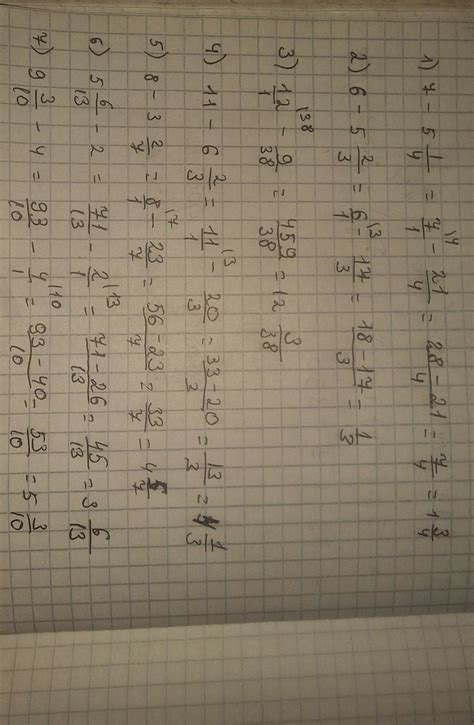 1) 7 - 5 1/4 = 7/1 |4 - 21/4 = 28-21/4 = 7/4 = 1 3/4
2) 6 - 5 2/3 = 6/1 |3 - 17/3 = 18-17/3 = 1/3
3) 12/1 |38 - 9/38 = 459/38 = 12 3/38
4) 11 - 6 2/3 = 11/1 |3 - 20/3 = 33-20/3 = 13/3 = 4 1/3
5) 8 - 3 2/7 = 8/1 |7 - 23/7 = 56-23/7 = 33/7 = 4 5/7
6) 5 6/13 - 2 = 71/13 - 2/1 |13 = 71-26/13 = 45/13 = 3 6/13
7) 9 3/10 - 4 = 93/10 - 4/1 |10 = 93-40/10 = 53/10 = 5 3/10